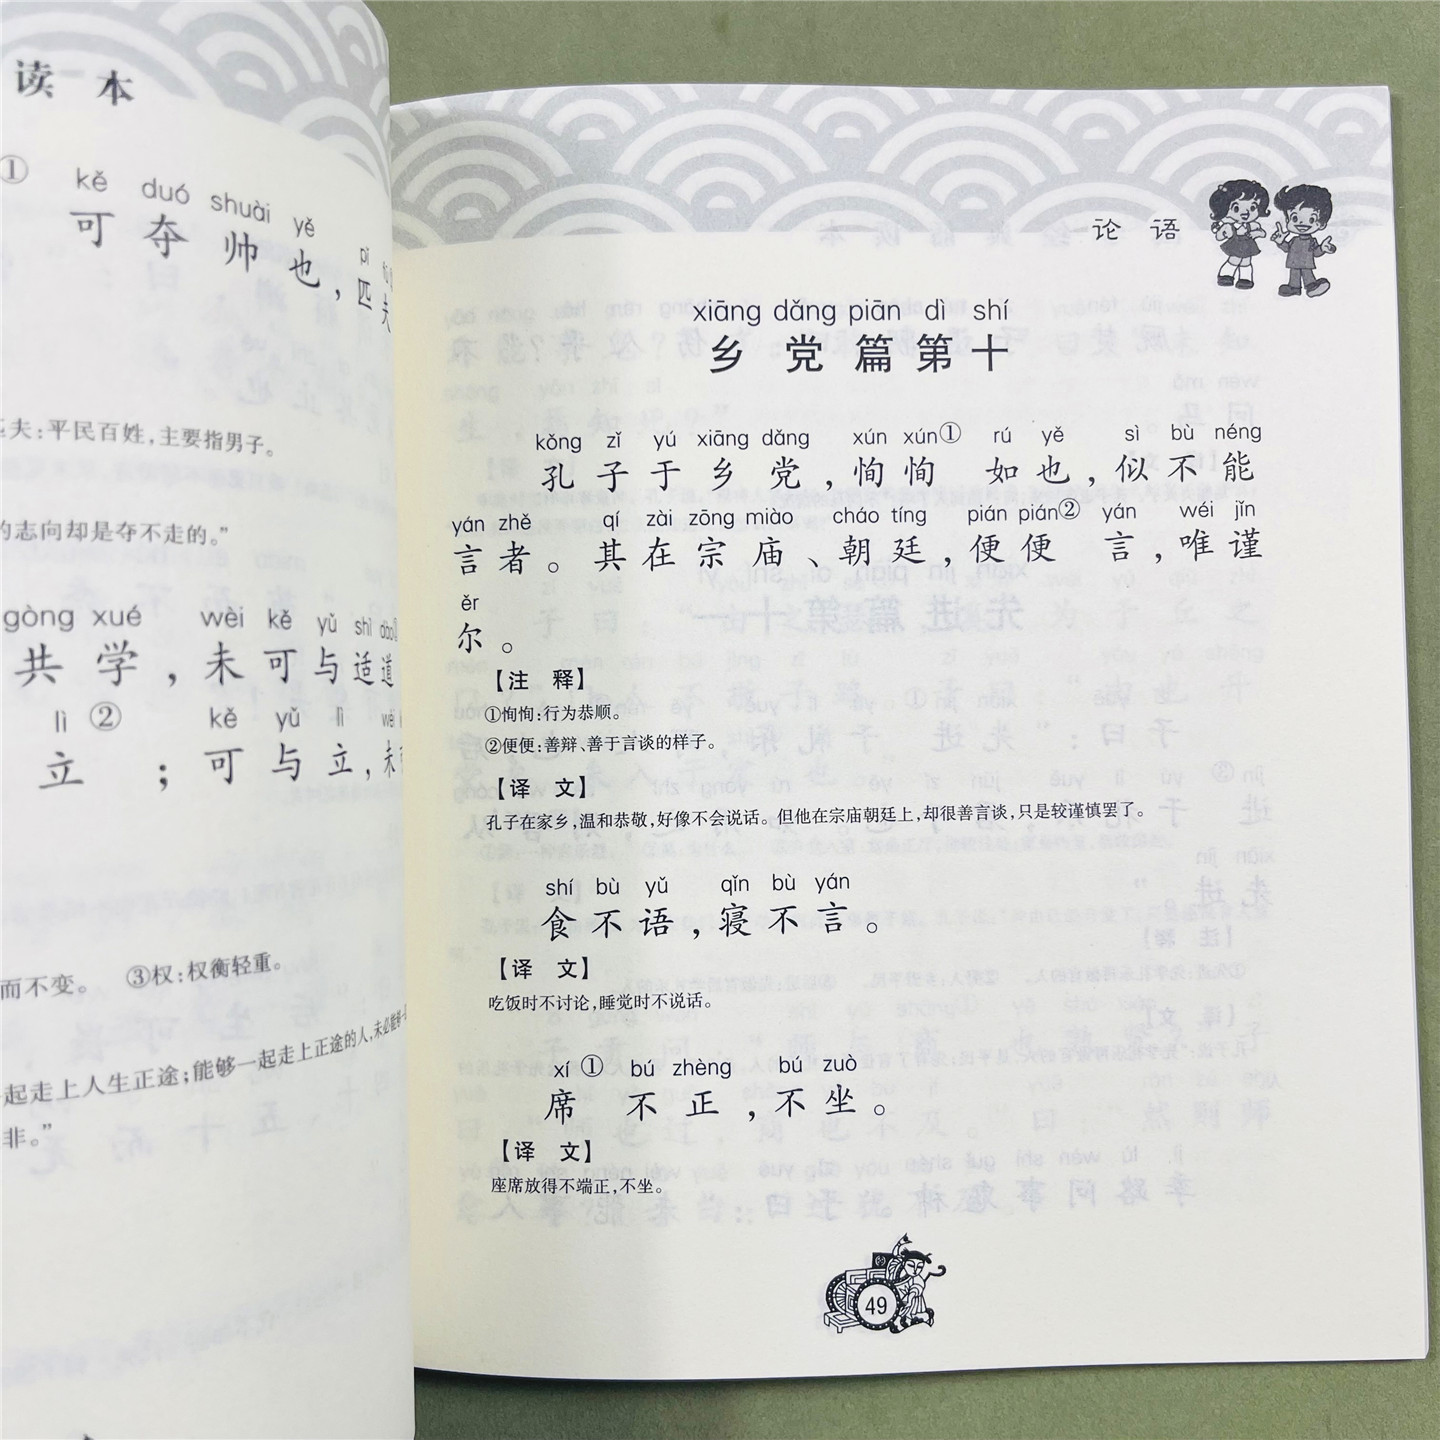 读 本
① kě duó shuài yě pǐ
可 夺 帅 也，匹 夫
夫：平民百姓，主要指男子。
的志向却是夺不走的。”
gòng xué wèi kě yǔ shì dào
共 学 ，未 可 与 适 道
lì ② kě yǔ lì wèi
立 ；可 与 立，未
而不变。 ③权：权衡轻重。
起走上人生正途；能够一起走上正途的人，未必能够
非。”
论 语
xiāng dǎng piān dì shí
乡 党 篇 第 十
kǒng zǐ yú xiāng dǎng xún xún① rú yě sì bù néng
孔 子 于 乡 党 ，恂 恂 如 也，似 不 能
yán zhě qí zài zōng miào cháo tíng pián pián② yán wéi jǐn
言 者 。其 在 宗 庙 、朝 廷 ，便 便 言 ，唯 谨
ěr
尔 。
【注 释】
①恂恂：行为恭顺。
②便便：善辩、善于言谈的样子。
【译 文】
孔子在家乡，温和恭敬，好像不会说话。但他在宗庙朝廷上，却很善言谈，只是较谨慎罢了。
shí bù yǔ qǐn bù yán
食 不 语 ，寝 不 言 。
【译 文】
吃饭时不讨论，睡觉时不说话。
xí ① bú zhèng bú zuò
席 不 正 ，不 坐 。
【译 文】
座席放得不端正，不坐。
49